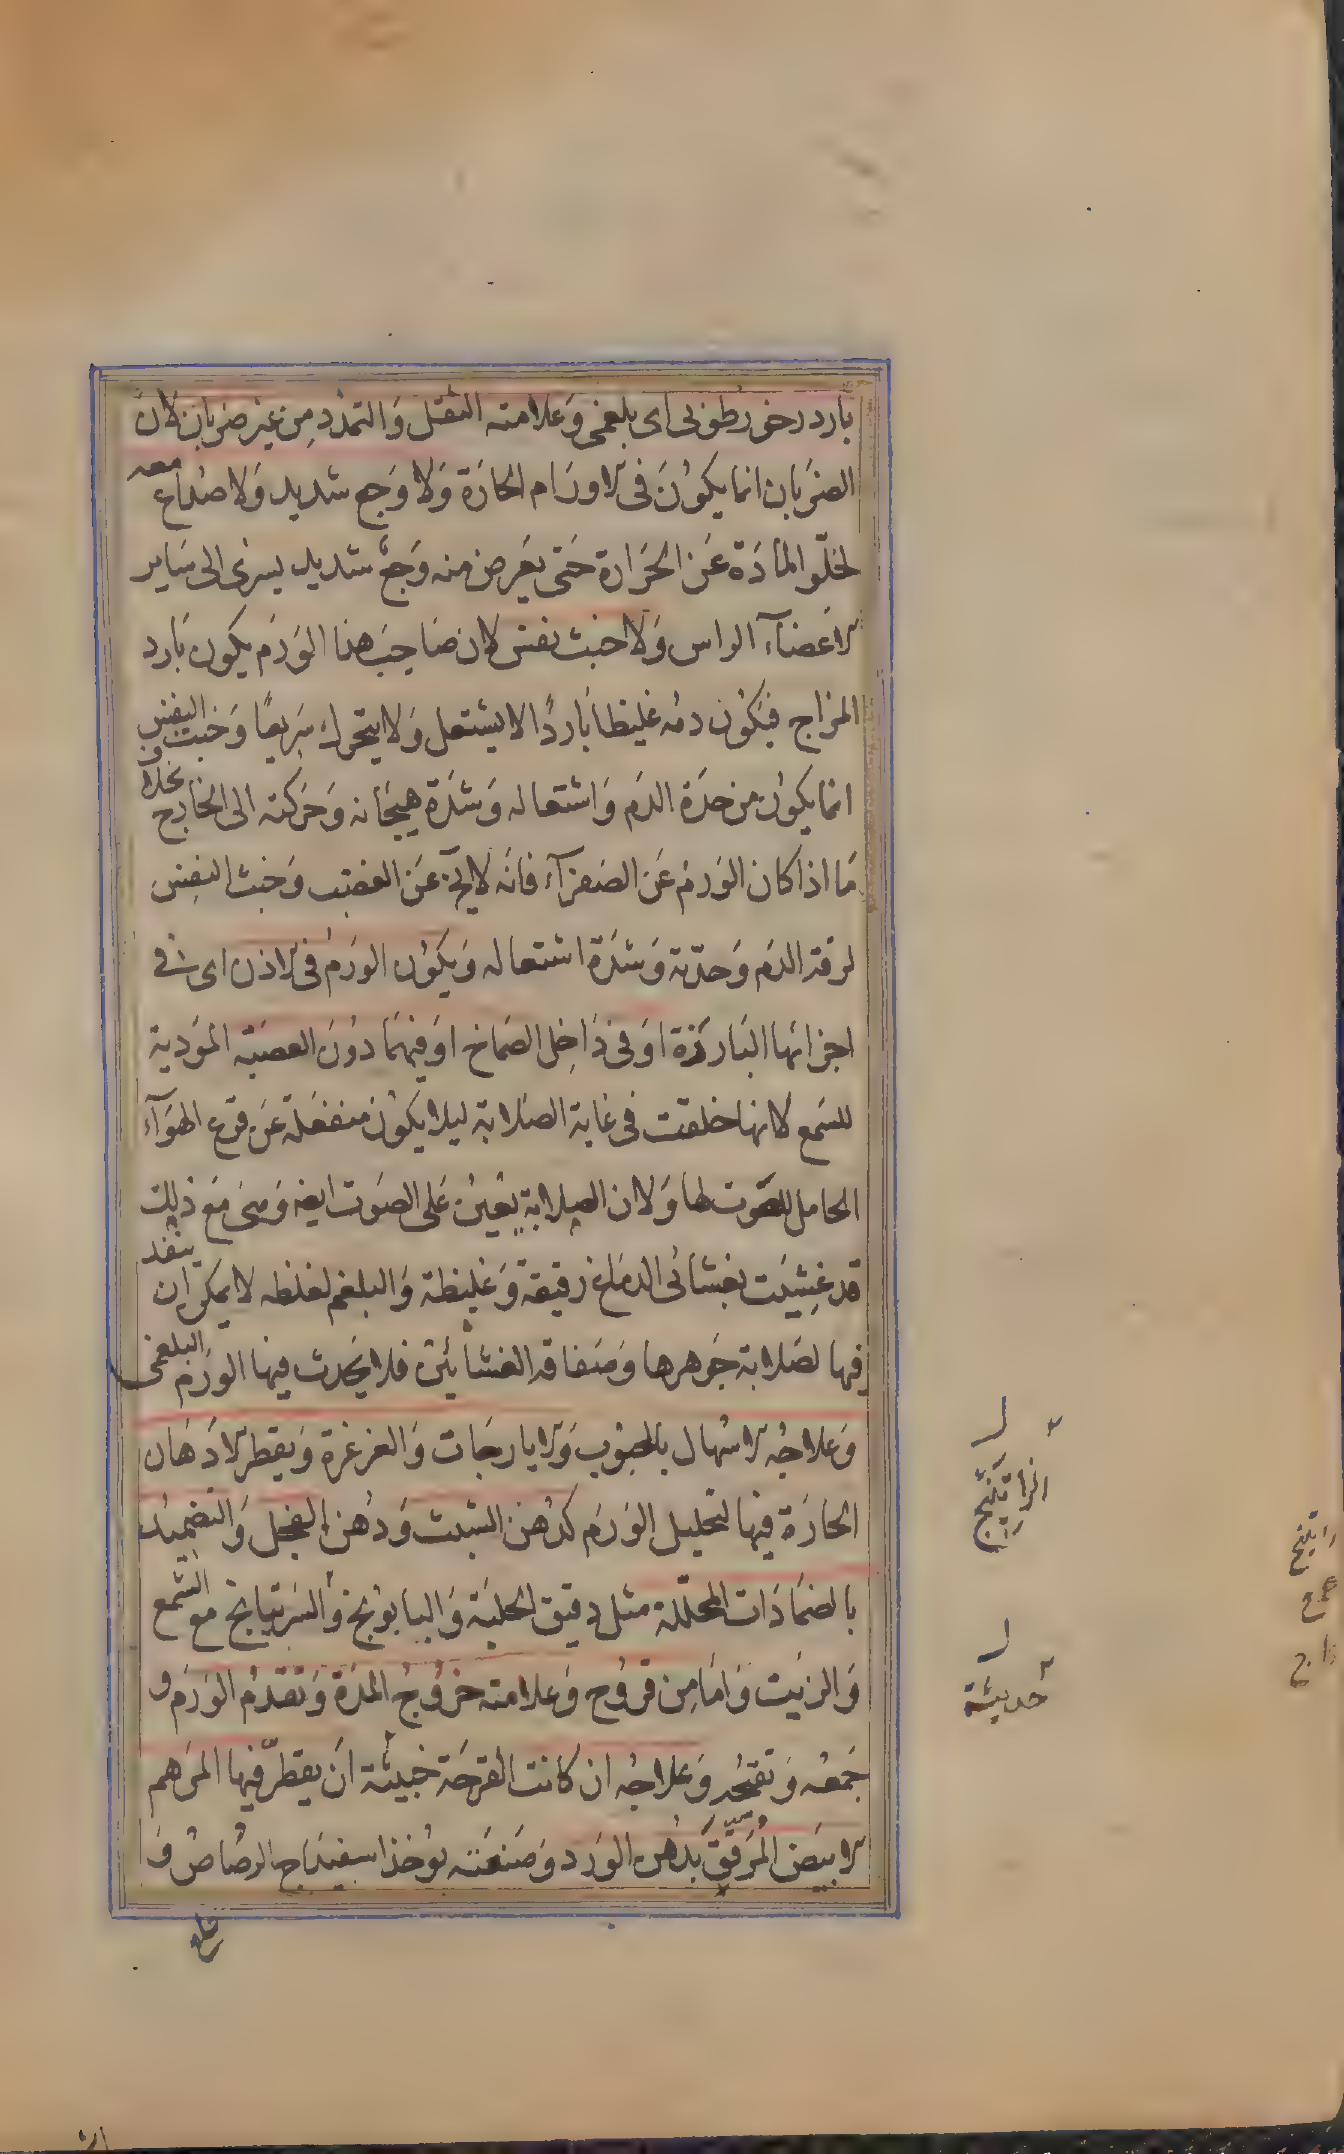 بارد رخو رطوبى اى بلغمى وَعلامته الثقل وَالتمدّد مِن غير ضربان لانّ
الضرَبان انما يكوُنَ فى الاورَام الحارَة وَلا وَجع شديد وَلا صُداع معه
لخلّو المادَة عَن الحَرَارة حَتى يعَرض منه وَجعٌ شديد يسرى الى سَاير
الاعَضآء الراس وَلا خبث نفس لان صَاحِب هذا الوَرَم يكون بَارد
المزاج فيَكوُن دمه غليظا بَاردًا لا يشتعل وَلا يتحرك سَريعًا وَخبث النفس
انما يكون من حدَة الدَم وَاشتعاله وَشدَة هيجَانه وَحَركته الى الخارج بخلاف
مَا اذا كان الوَرم عَن الصَفرآء فانَه لا يخ عَن الغضب وَخبث النفس
لرقة الدَم وَحدّته وَشدَة اشتعاله وَيكوُن الورَم فى الاذن اى فى
اجزائها البَارزة اوَ فى دَاخِل الصماخ اوَ فيهمَا دوُنَ العصَبَة المؤدية
للسَمع لانها خلقت فى غاية الصَلابة ليلا يكوُن منفعَلة عَن قرع الهوَآء
الحامل للصَوت لها وَلان الصلابة يعُين عَلى الصَوت ايضه وَهى مَع ذلك
قد غِشيَت بغشائى الدمَاغ رقيقة وَغليظة وَالبلغم لغلظه لا يمكن ان ينفد
فيها لصَلابة جَوهرها وَصَفاقة الغشائين فلا يحَدث فيها الورَم البلغمى
وَعلاجُه الاسُهال بالحبوب وَالايارجَات وَالغرغرة وَيقطر الادَهَان
الحارَة فيها لتحليل الوَرَم كدُهن الشبث وَدُهن الفجل وَالتضميُد
بالضمَادَات المحللّة مثل دقيق الحلبَة وَالبابوُنج وَالسَرتيانج مع الشمع
وَالزيَت وَامَا مِن قروُح وَعلامته خروُج المدَة وَتقدّمُ الوَرَم و
جَمعُه وَتقيحُه وَعلاجُه ان كانت القرحَة خبيثة انَ يقطّر فيها المرَهم
الابيَض المُرَقّق بَدهُن الوَرَد وَصَنعَته يوُخذ اسفيداج الرصُاصُ وَ
الراتيَنج
حديثة